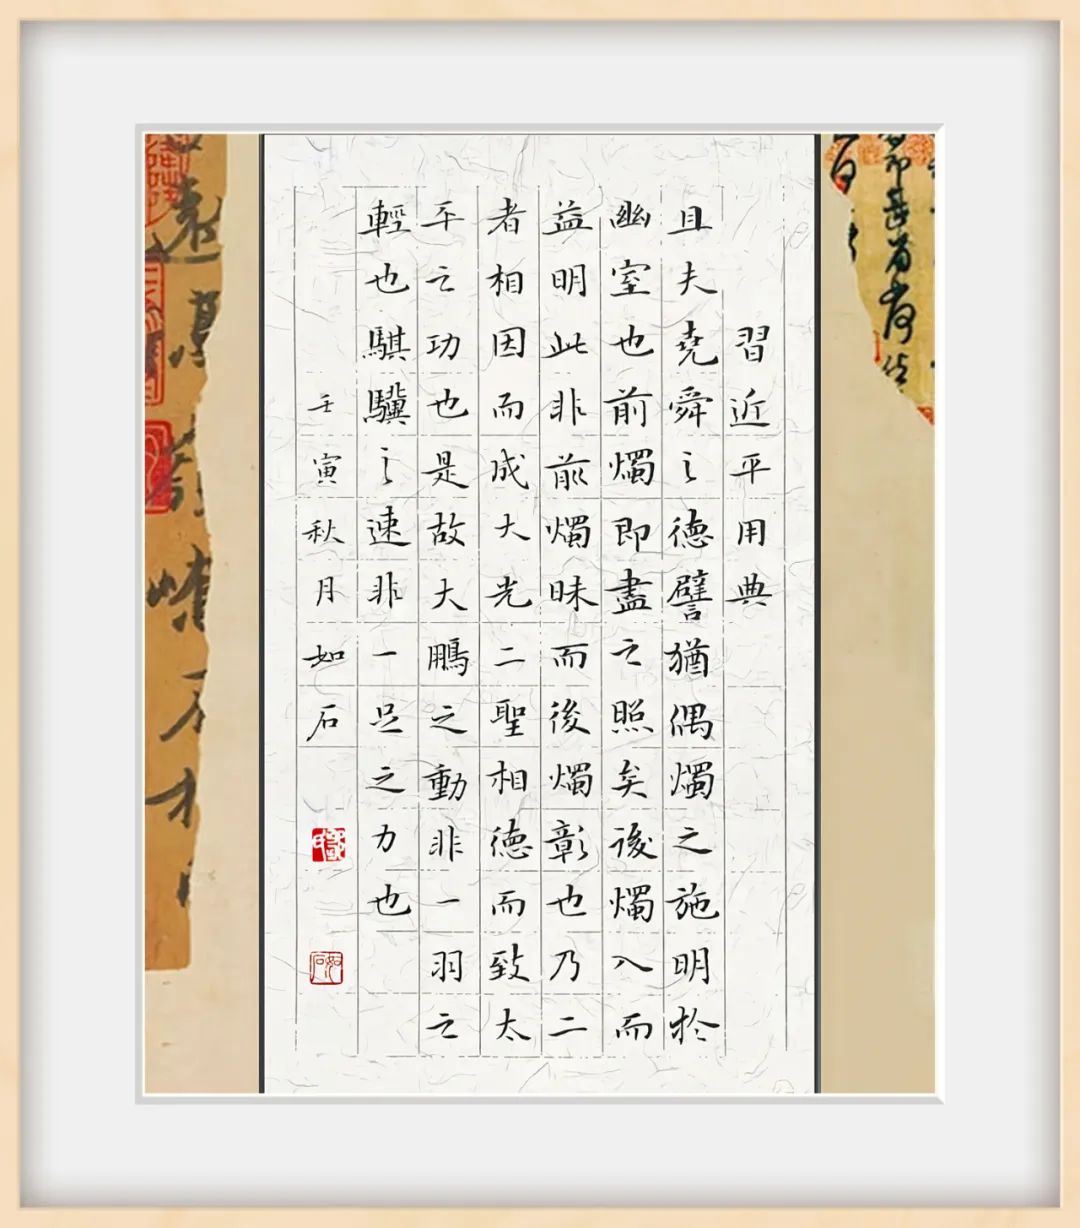 習近平用典
且夫堯舜之德譬猶偶燭之施明於
幽室也前燭即盡之照矣後燭入而
益明此非前燭昧而後燭彰也乃二
者相因而成大光二聖相德而致太
平之功也是故大鵬之動非一羽之
輕也騏驥之速非一足之力也
壬寅秋月如石
如石